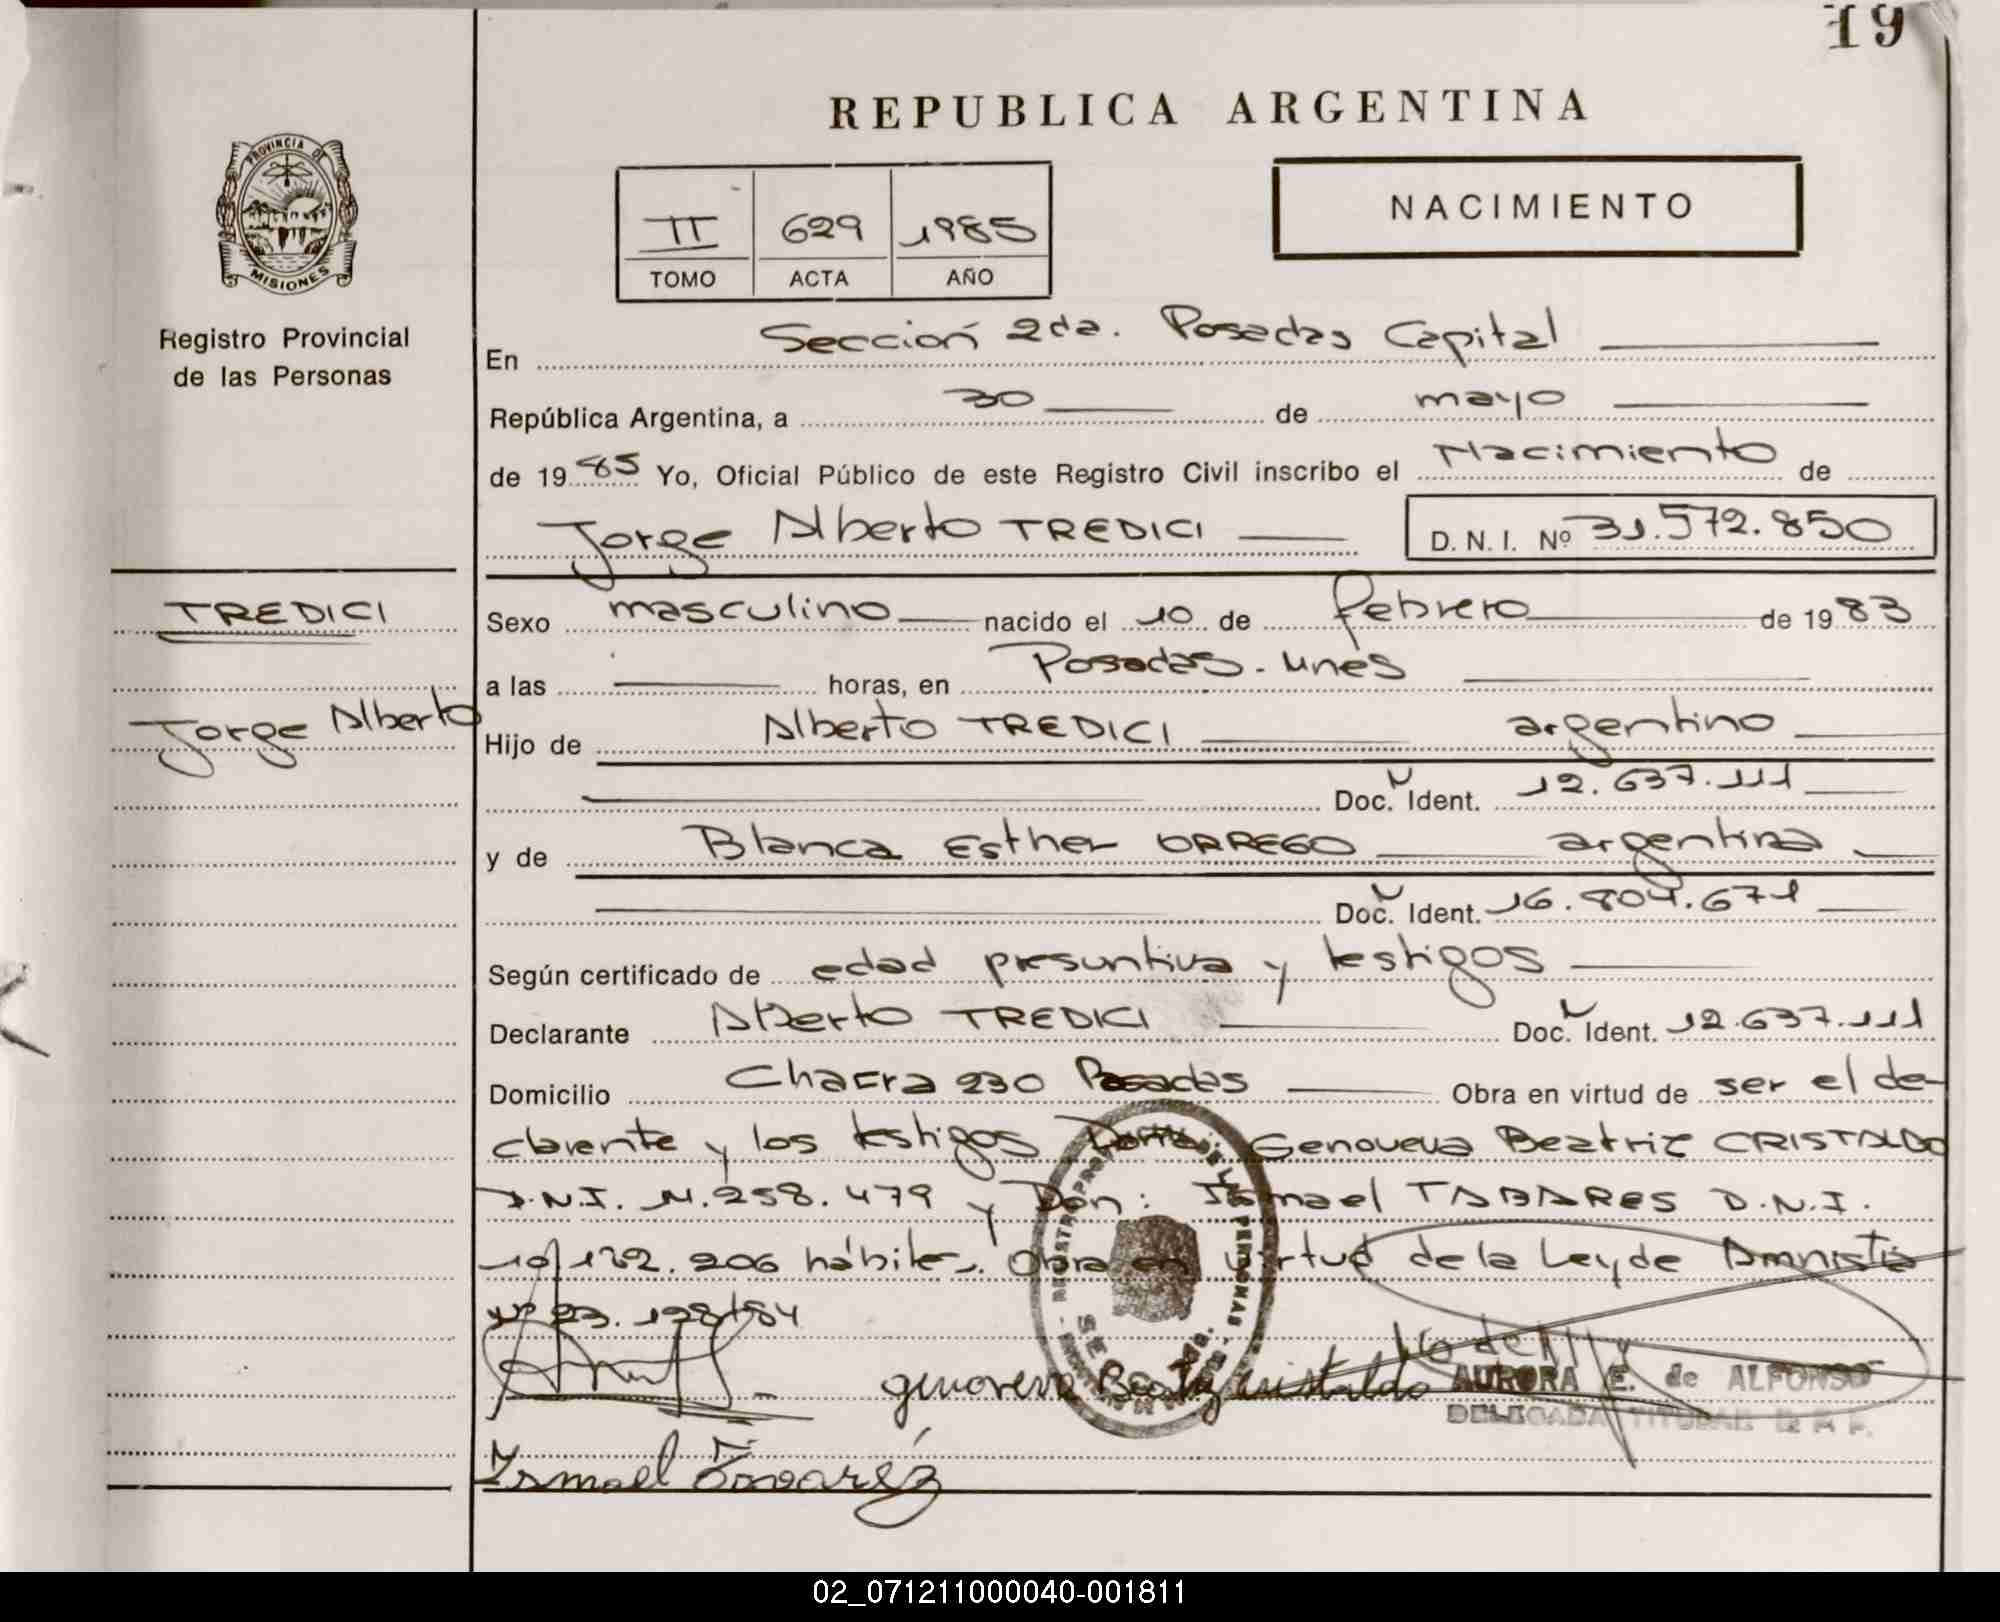 19
REPUBLICA ARGENTINA
PROVINCIA DE
MISIONES
Registro Provincial
de las Personas
II 629 1985
TOMO ACTA AÑO
NACIMIENTO
En Sección 2da. Posadas Capital
República Argentina, a 30 de mayo
de 1985 Yo, Oficial Público de este Registro Civil inscribo el Nacimiento de
Jorge Alberto TREDICI D. N. I. Nº 31.572.850
TREDICI
Jorge Alberto
Sexo masculino nacido el 10 de febrero de 1983
a las horas, en Posadas. Mnes
Hijo de Alberto TREDICI argentino
Doc. Ident. 12.637.111
y de Blanca Esther ORREGO argentina
Doc. Ident. 16.804.671
Según certificado de edad presuntiva y testigos
Declarante Alberto TREDICI Doc. Ident. 12.637.111
Domicilio Chacra 230 Posadas Obra en virtud de ser el de-
clarente y los testigos Doña Genoveva Beatriz CRISTALDO
D.N.I. 11.258.479 y Don: Ismael TABARES D.N.I.
10.122.206 hábiles. Obra en virtud de la Ley de Amnistia
Nº 23.128/84
genoveva Beatriz cristaldo
AURORA E. de ALFONSO
DELEGADA TITULAR R P P.
Ismael Tavaréz
02_071211000040-001811